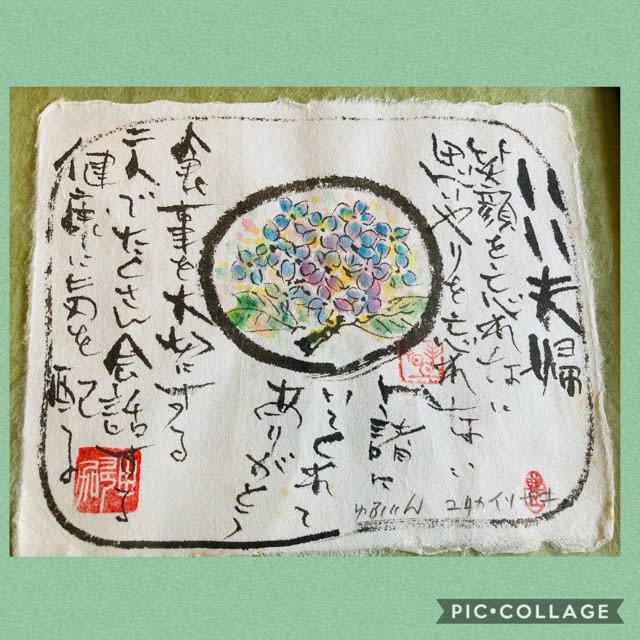 いい夫婦
笑顔を忘れない
思いやりを忘れない
一緒に
いてくれて
ありがとう
食事を大切にする
二人でたくさん会話する
健康に気を配る
ゆふいん
PIC•COLLAGE